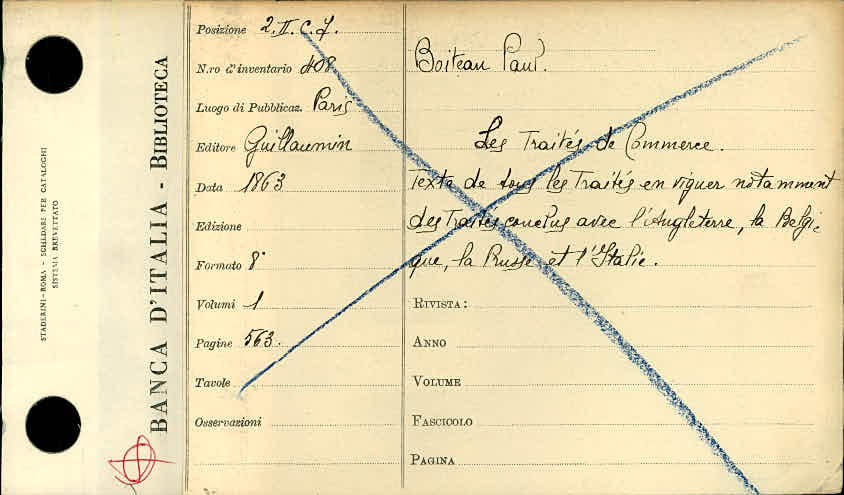 STADERINI - ROMA - SCHEDARI PER CATALOGHI
SISTEMA BREVETTATO
BANCA D'ITALIA - BIBLIOTECA
Posizione 2. II. C. 7.
N.ro d'inventario 408
Luogo di Pubblicaz. Paris
Editore Guillaumin
Data 1863
Edizione
Formato 8°
Volumi 1
Pagine 563.
Tavole
Osservazioni
Boiteau Paul.
Les Traités de Commerce.
Texte de tous les Traités en viguer notamment
des Traités conclus avec l'Angleterre, la Belgi-
que, la Prusse et l'Italie.
RIVISTA:
ANNO
VOLUME
FASCICOLO
PAGINA